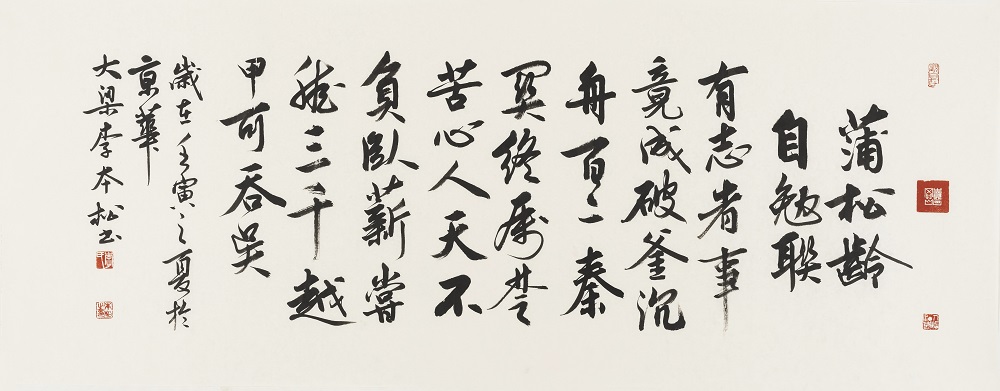 蒲松齡
自勉聯
有志者事
竟成破釜沉
舟百二秦
關終屬楚
苦心人天不
負臥薪嘗
胆三千越
甲可吞吳
歲在壬寅之夏於
京華
大梁李本松书